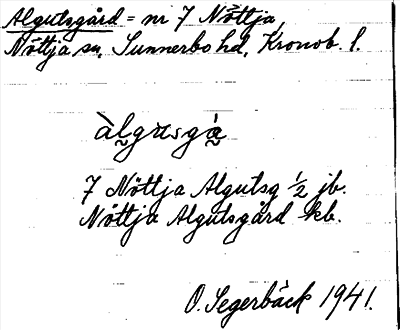 Algutsgård = nr 7 Nöttja
Nöttja sn, Sunnerbo hd, Kronob. l.
àlgusgá
7 Nöttja Algutsg 1/2 jb.
Nöttja Algutsgård kb.
O. Segerbäck 1941.